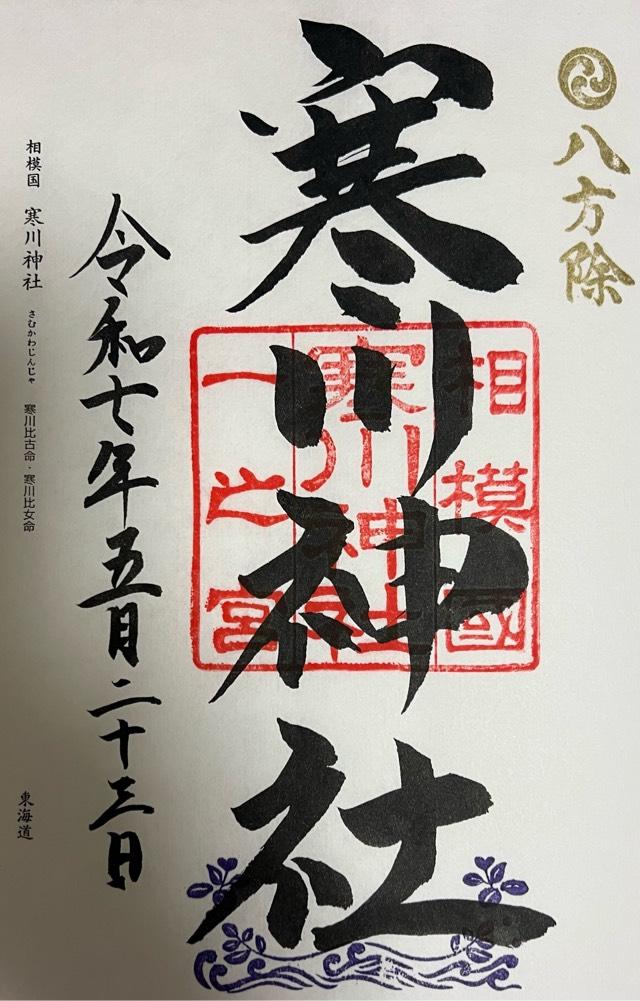 八方除
相模國
寒川神社
一之宮
寒川神社
令和七年五月二十三日
相模国 寒川神社 さむかわじんじゃ 寒川比古命・寒川比女命
東海道